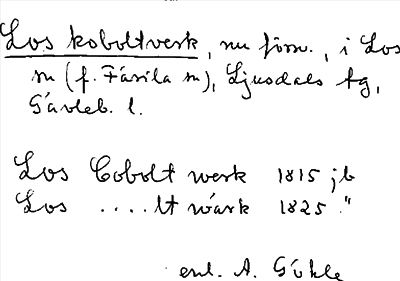 Los koboltverk, nu förv., i Los
sn (f. Färila sn), Ljusdals tg,
Gävleb. l.
Los Cobolt werk 1815 jb
Los ....lt wärk 1825 "
enl. A. Göhle